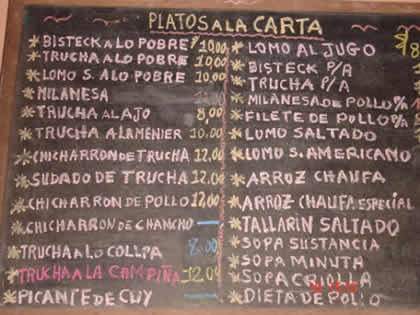 PLATOS A LA CARTA
* BISTECK A LO POBRE $/ 10,00
* TRUCHA A LO POBRE 10,00
* LOMO S. A LO POBRE 10,00
* MILANESA
* TRUCHA AL AJO 8,00
* TRUCHA A LA MENIER 10.00
* CHICHARRON DE TRUCHA 12.00
* SUDADO DE TRUCHA 12,00
* CHICHARRON DE POLLO 12,00
* CHICHARRON DE CHANCHO —
* TRUCHA A LO COLLPA 8.00
* TRUCHA A LA CAMPIÑA 12.00
* PICANTE DE CUY —
* LOMO AL JUGO
* BISTECK P/A
* TRUCHA P/A
* MILANESA DE POLLO %
* FILETE DE POLLO %
* LOMO SALTADO
* LOMO S. AMERICANO
* ARROZ CHAUFA
* ARROZ CHAUFA ESPECIAL
* TALLARIN SALTADO
* SOPA SUSTANCIA
* SOPA MINUTA
* SOPA CRIOLLA
* DIETA DE POLLO